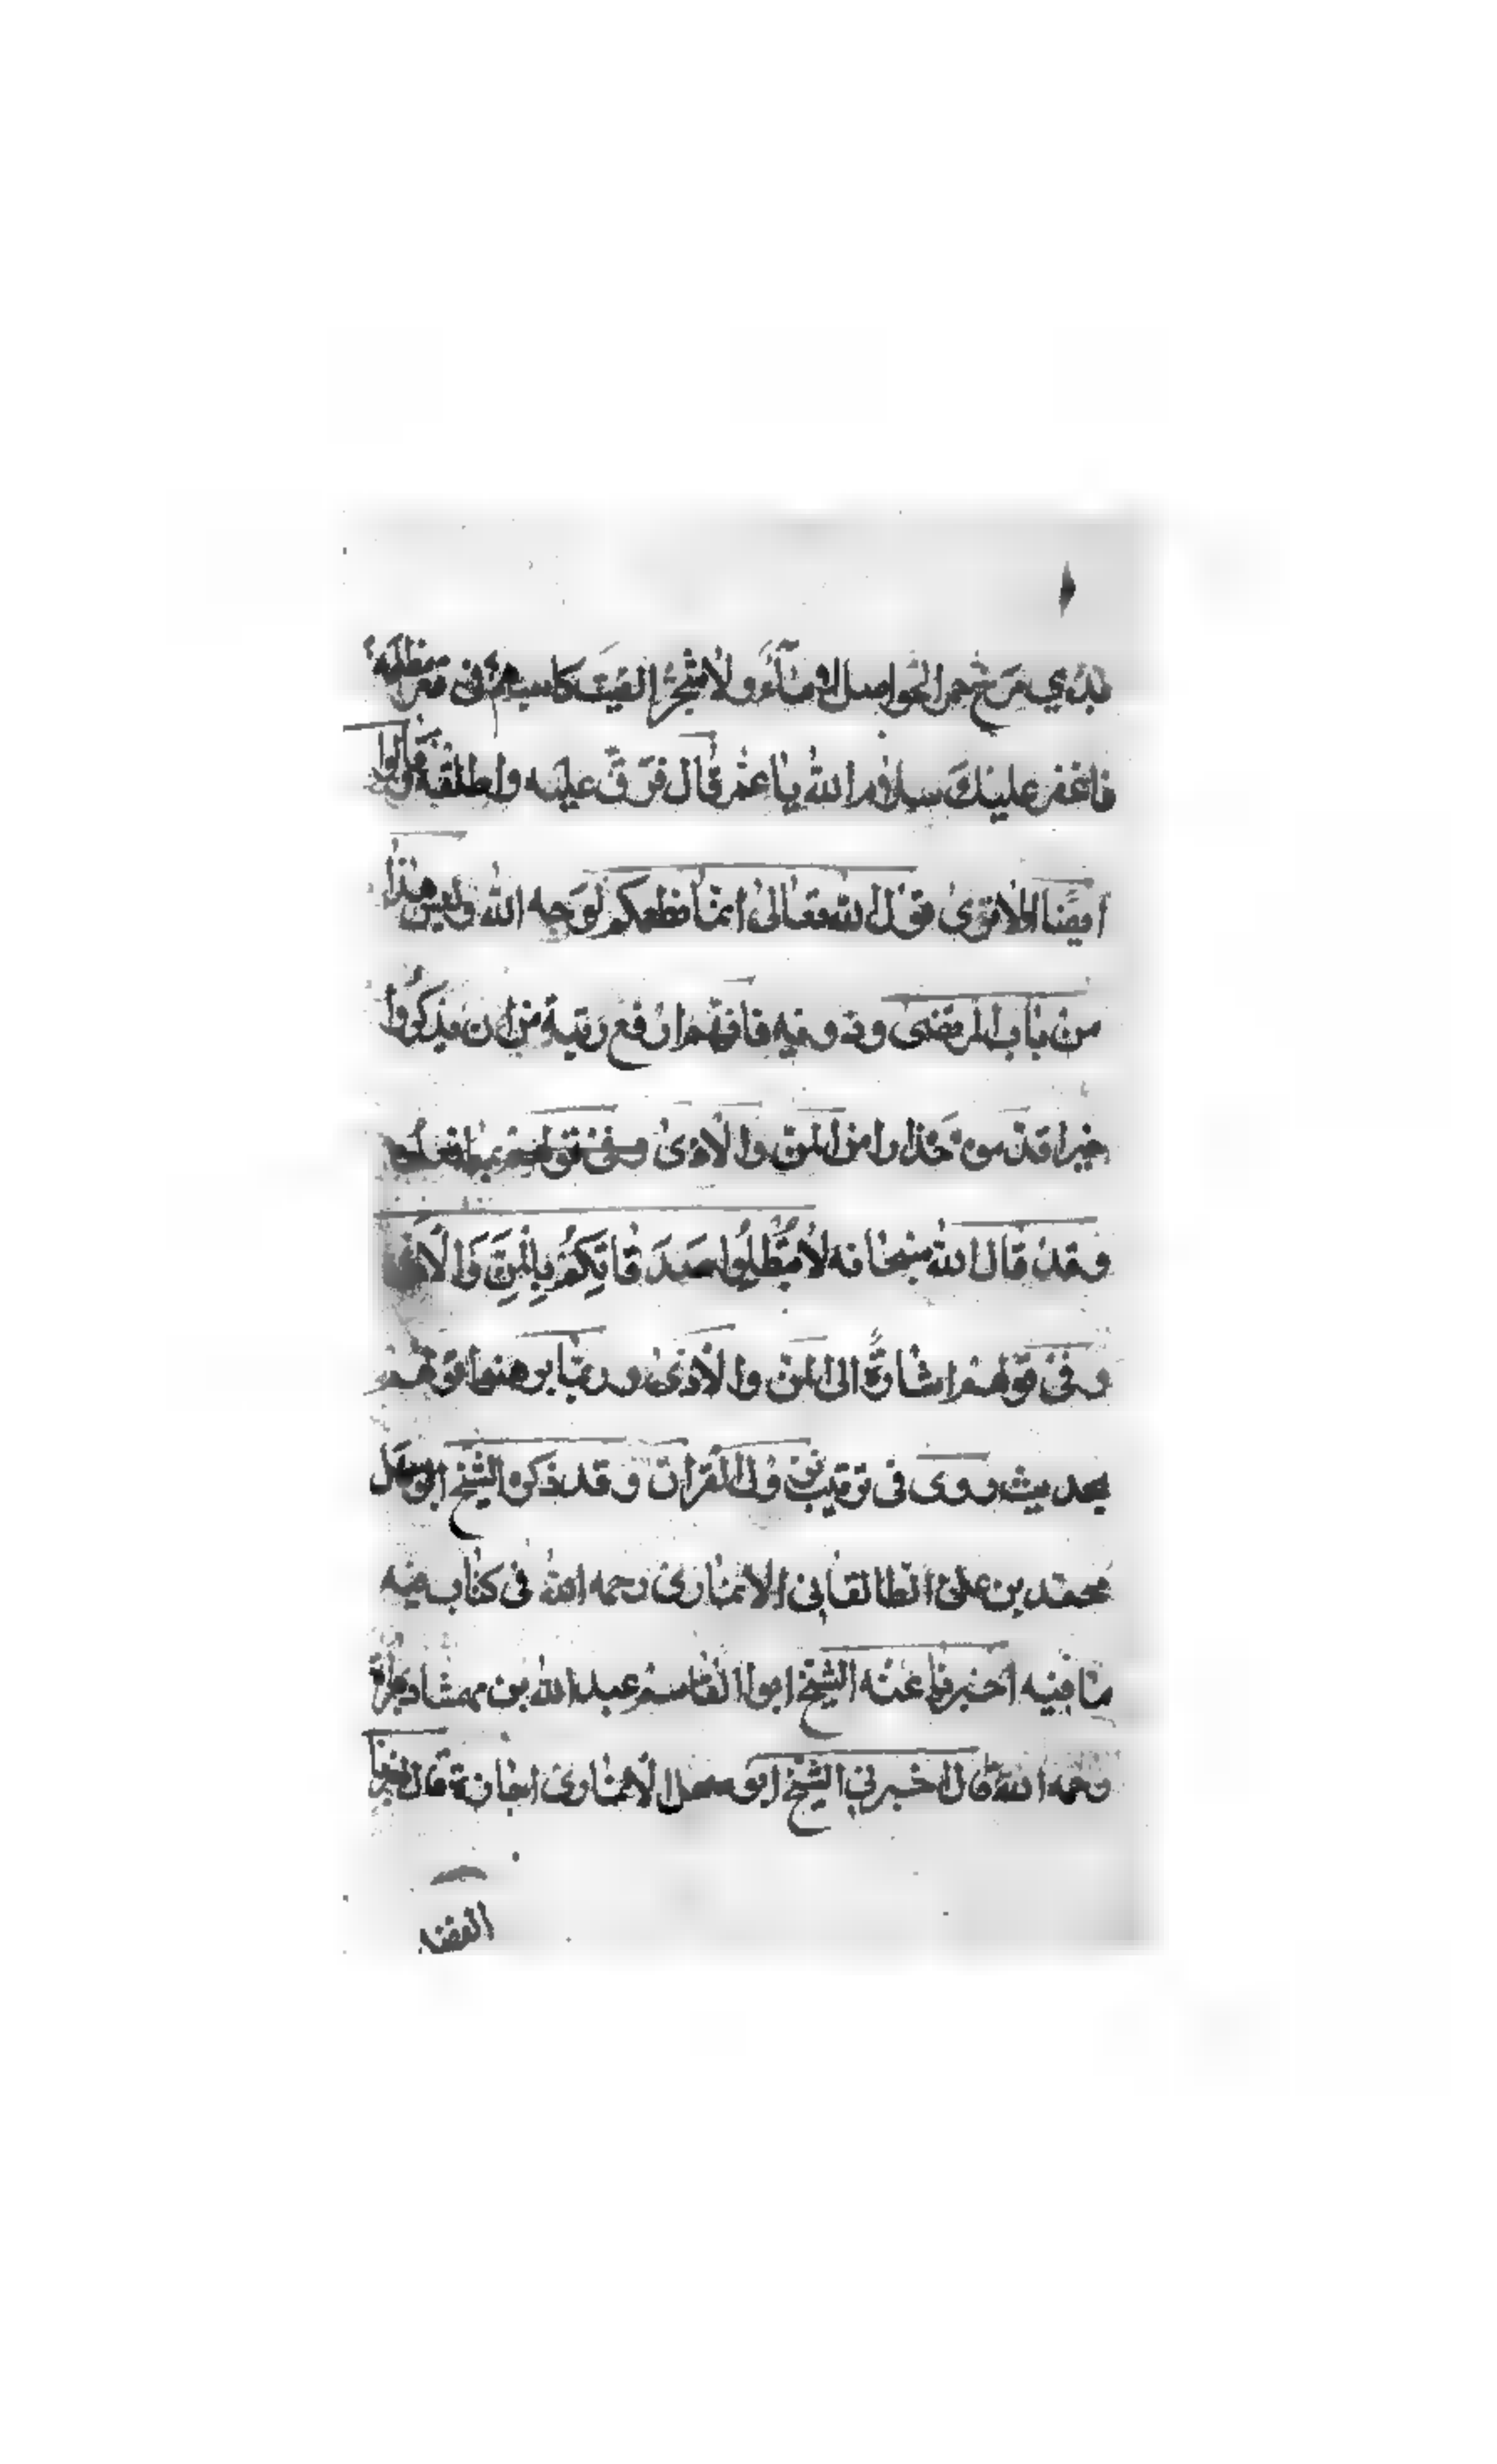 بذي مرخ حمر الحواصل لا مآء ولا شجر القيت كاسبهم في قعر مظلمة
فاغفر عليك سلام الله يا عمر قال فرق عليه واطلقه وقالوا
ايضا الا ترى قول الله تعالى انما نطعمكم لوجه الله وليس هذا
من باب المرتضى وذويه فانهم ارفع رتبة من ان يذكروا
خيرا قدموه حذارا من المن والاذى وفي قولهم
وقد قال الله سبحانه لا تبطلوا صدقاتكم بالمن والاذى
وفي قولهم اشارة الى المن والاذى وربما برهنوا قولهم
بحديث روى في ترتيب نزول القران وقد ذكره الشيخ ابو سهل
محمد بن على الطالقانى الانمارى رحمه الله فى كتاب فيه
ما فيه اخبرنا عنه الشيخ ابو القاسم عبد الله بن ممشاد
رحمه الله قال اخبرني الشيخ ابو سهل الانمارى اجازة قال اخبرنا